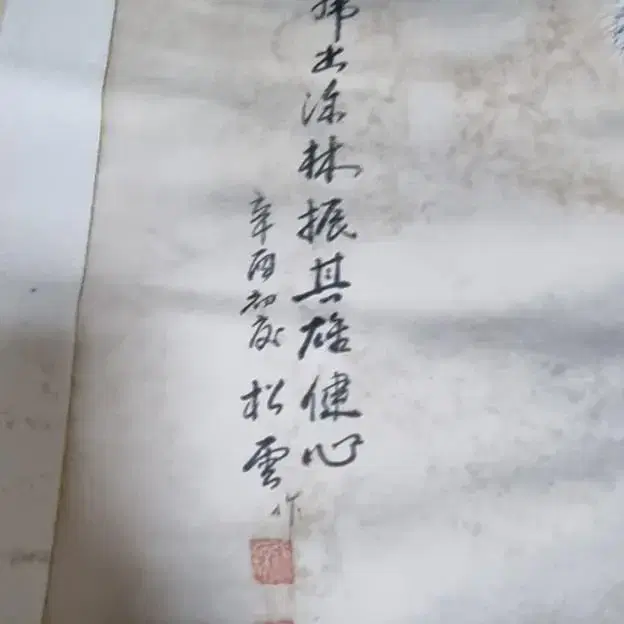 虎出深林振其雄健心
辛酉初夏 松雲作